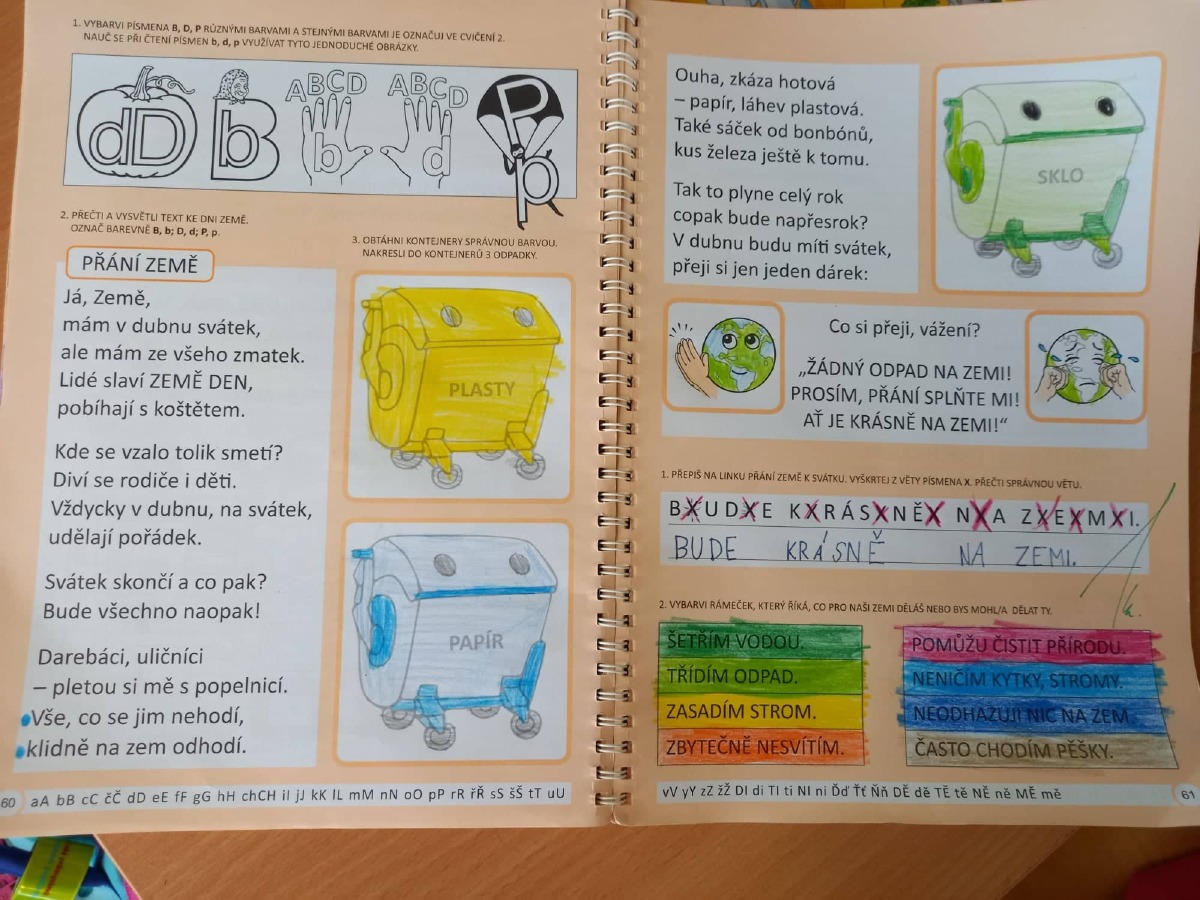 1. VYBARVI PÍSMENA B, D, P RŮZNÝMI BARVAMI A STEJNÝMI BARVAMI JE OZNAČUJ VE CVIČENÍ 2.
NAUČ SE PŘI ČTENÍ PÍSMEN b, d, p VYUŽÍVAT TYTO JEDNODUCHÉ OBRÁZKY.
dD
b B
ABCD
b
ABCD
d
P
p
2. PŘEČTI A VYSVĚTLI TEXT KE DNI ZEMĚ.
OZNAČ BAREVNĚ B, b; D, d; P, p.
PŘÁNÍ ZEMĚ
Já, Země,
mám v dubnu svátek,
ale mám ze všeho zmatek.
Lidé slaví ZEMĚ DEN,
pobíhají s koštětem.
Kde se vzalo tolik smetí?
Diví se rodiče i děti.
Vždycky v dubnu, na svátek,
udělají pořádek.
Svátek skončí a co pak?
Bude všechno naopak!
Darebáci, uličníci
– pletou si mě s popelnicí.
Vše, co se jim nehodí,
klidně na zem odhodí.
3. OBTÁHNI KONTEJNERY SPRÁVNOU BARVOU.
NAKRESLI DO KONTEJNERŮ 3 ODPADKY.
PLASTY
PAPÍR
60 aA bB cC čČ dD eE fF gG hH chCH iI jJ kK lL mM nN oO pP rR řŘ sS šŠ tT uU
Ouha, zkáza hotová
– papír, láhev plastová.
Také sáček od bonbónů,
kus železa ještě k tomu.
Tak to plyne celý rok
copak bude napřesrok?
V dubnu budu míti svátek,
přeji si jen jeden dárek:
SKLO
Co si přeji, vážení?
„ŽÁDNÝ ODPAD NA ZEMI!
PROSÍM, PŘÁNÍ SPLŇTE MI!
AŤ JE KRÁSNĚ NA ZEMI!“
1. PŘEPIŠ NA LINKU PŘÁNÍ ZEMĚ K SVÁTKU. VYŠKRTEJ Z VĚTY PÍSMENA X. PŘEČTI SPRÁVNOU VĚTU.
BXUDXE KXRÁSXNĚX NXA ZXEXMXI.
BUDE KRÁSNĚ NA ZEMI.
2. VYBARVI RÁMEČEK, KTERÝ ŘÍKÁ, CO PRO NAŠI ZEMI DĚLÁŠ NEBO BYS MOHL/A DĚLAT TY.
ŠETŘÍM VODOU.
TŘÍDÍM ODPAD.
ZASADÍM STROM.
ZBYTEČNĚ NESVÍTÍM.
POMŮŽU ČISTIT PŘÍRODU.
NENIČÍM KYTKY, STROMY.
NEODHAZUJI NIC NA ZEM.
ČASTO CHODÍM PĚŠKY.
vV yY zZ žŽ DI di TI ti NI ni Ďď Ťť Ňň DĚ dě TĚ tě NĚ ně MĚ mě 61